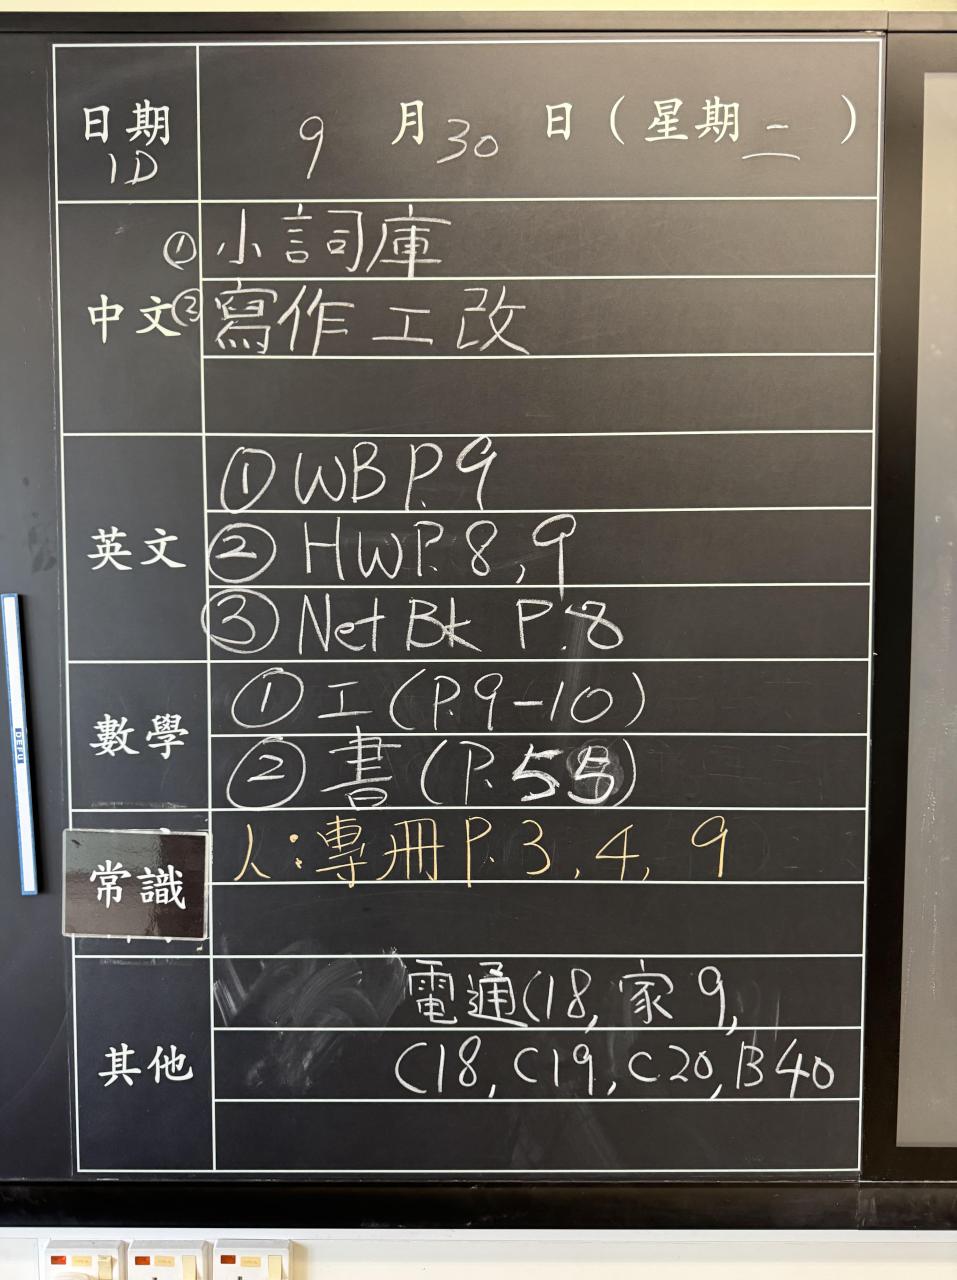 日期 9月30日（星期二）
1D
① 小詞庫
中文 ② 寫作工改
① WB P.9
英文 ② HW P.8,9
③ Net Bk P.8
① 工(P.9-10)
數學
② 書(P.55)
常識 人:專冊 P.3,4,9
電通C18,家9,
其他 C18,C19,C20,B40
DEFU